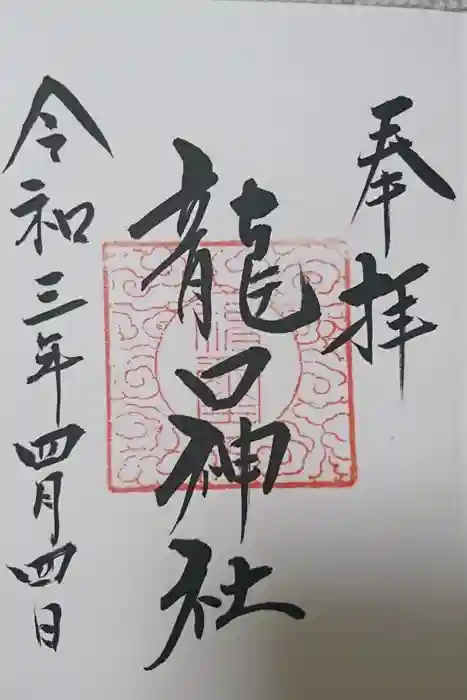 奉拝
龍口神社
令和三年四月四日